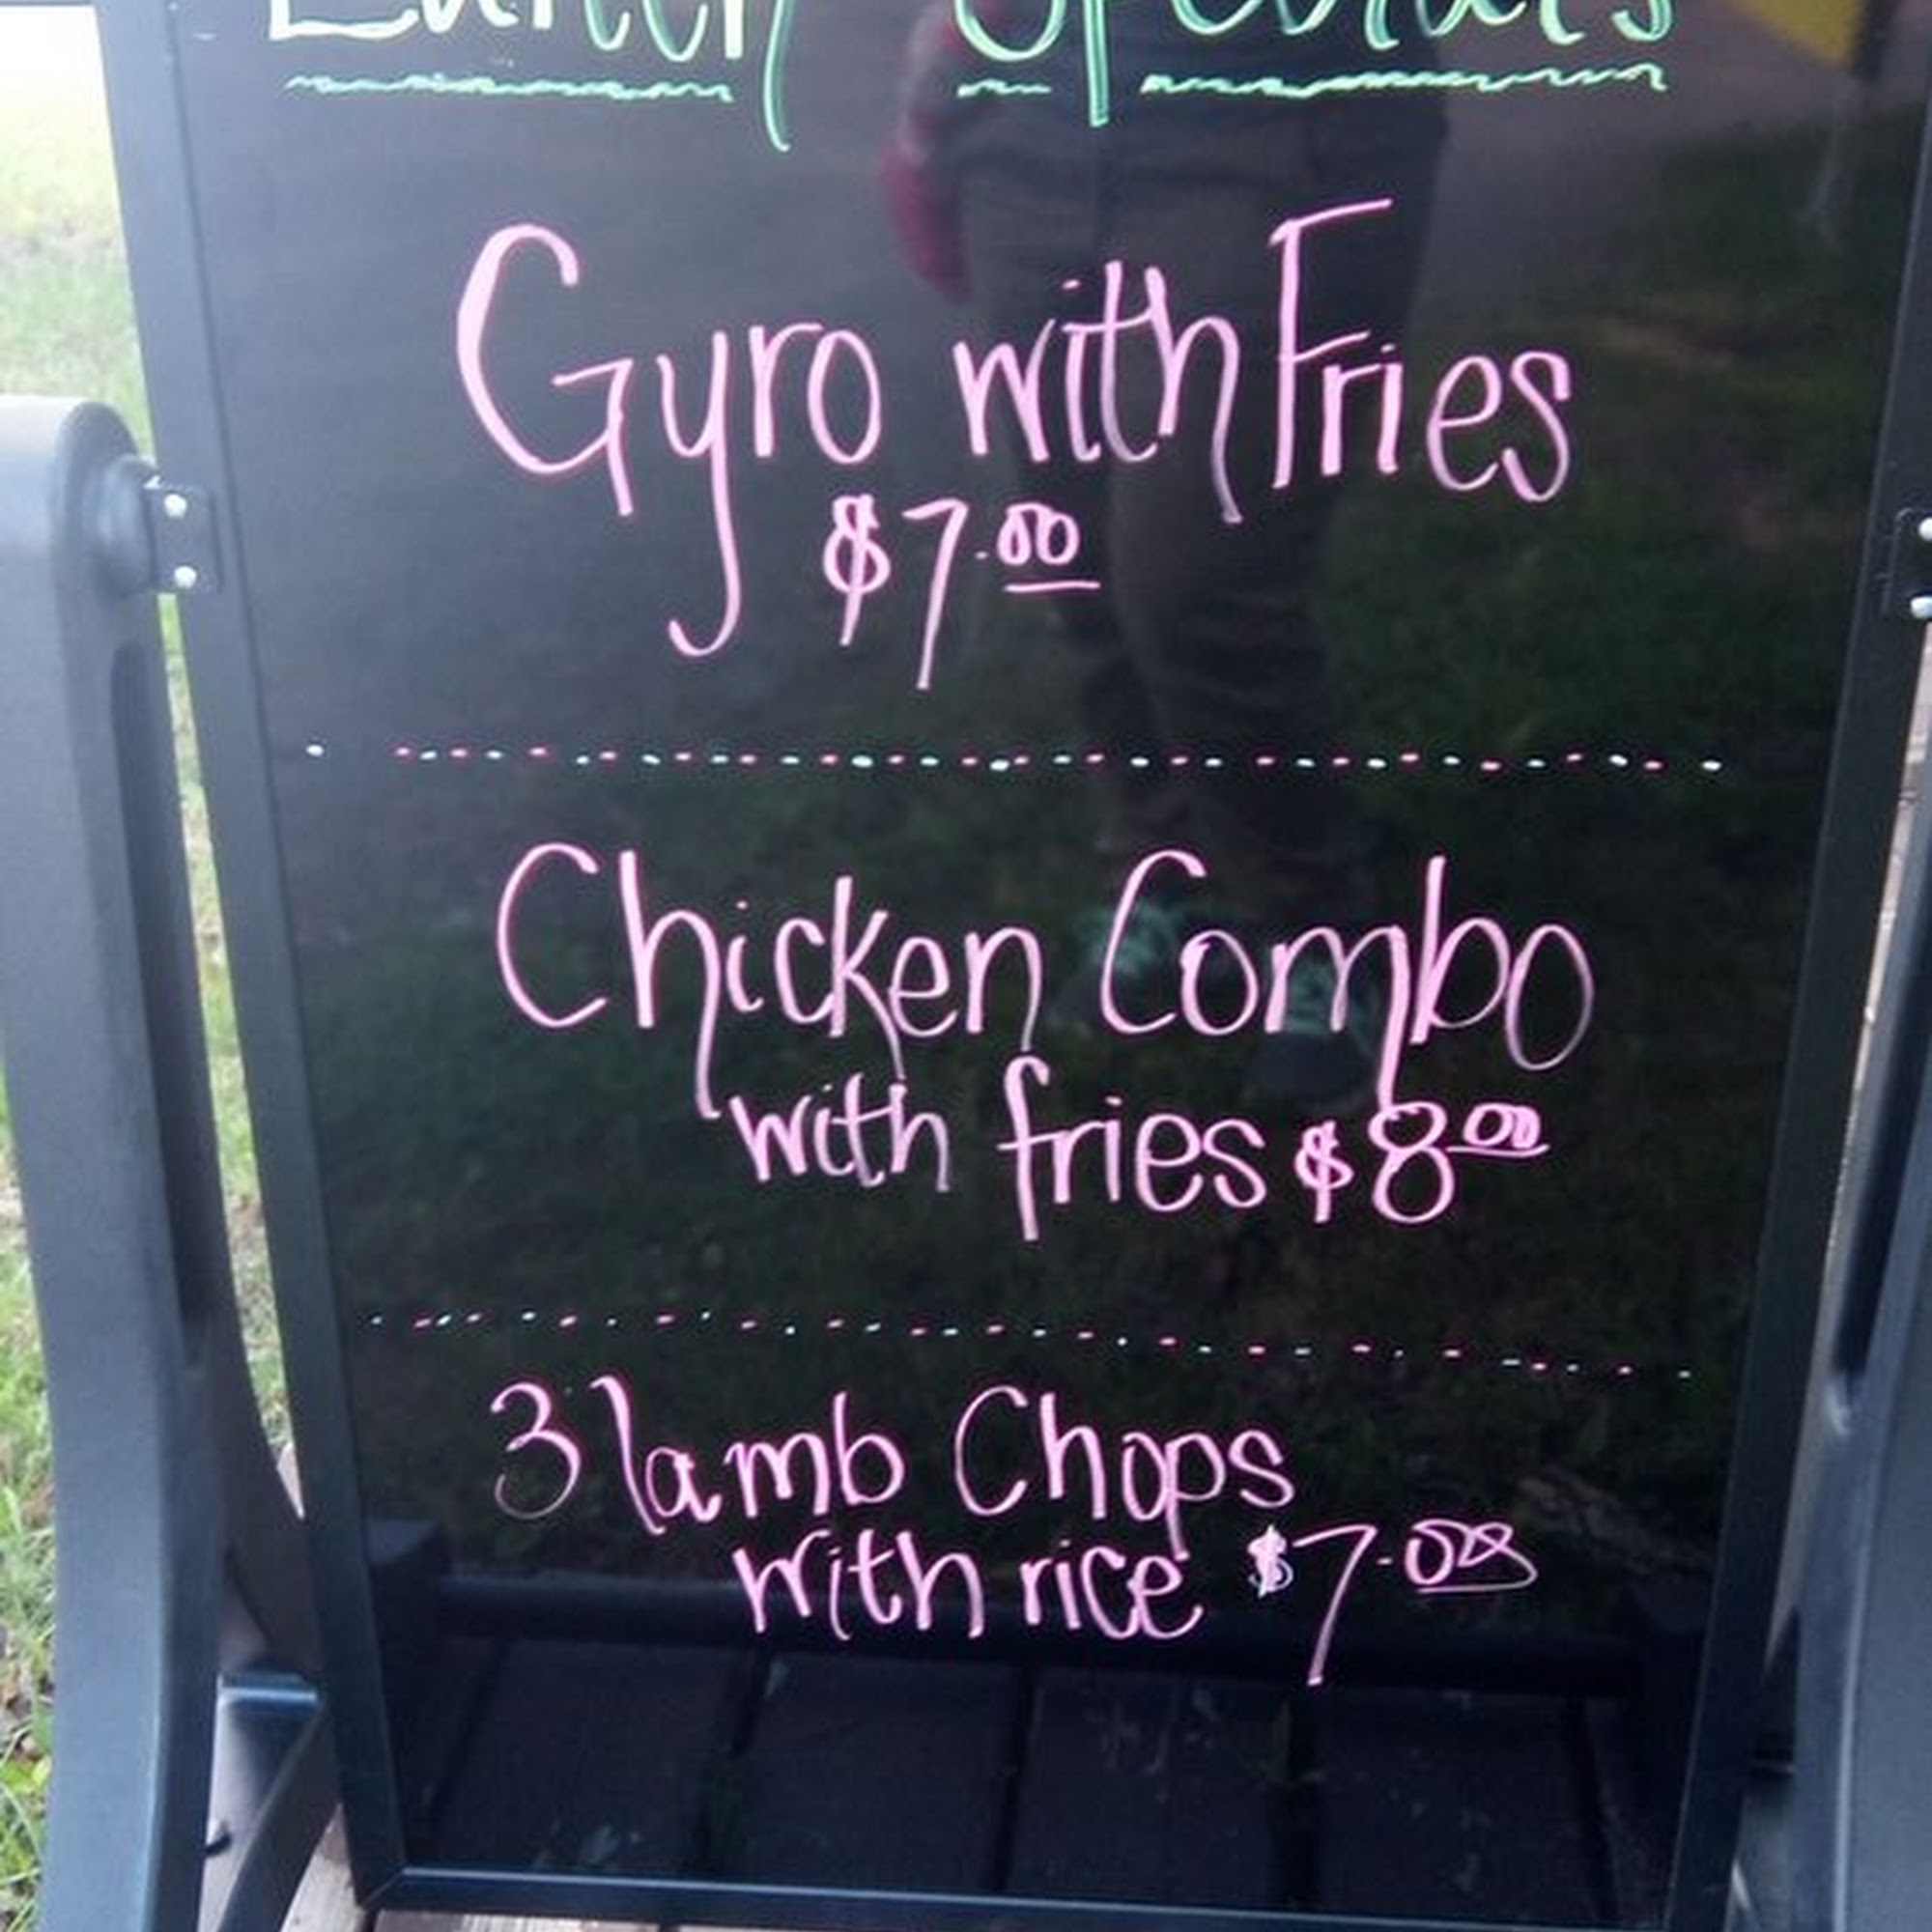 Lunch Specials
Gyro with Fries
$7.00
Chicken Combo
with fries $8.00
3 lamb Chops
with rice $7.00